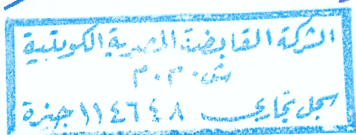 الشركة القابضة المصرية الكويتية
ش.م.م
سجل تجاري ١١٤٦٤٨ جيزة